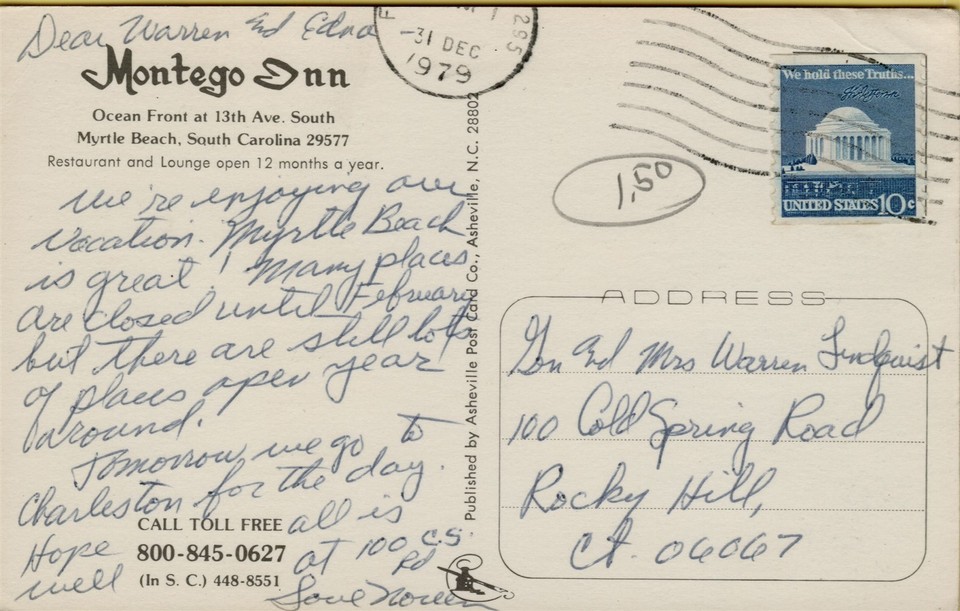 Dear Warren Ed Edna
Montego Inn
Ocean Front at 13th Ave. South
Myrtle Beach, South Carolina 29577
Restaurant and Lounge open 12 months a year.
We're enjoying our
vacation. Myrtle Beach
is great! Many places
are closed until February
but there are still lots
of places open year
around.
Tomorrow we go to
Charleston for the day.
Hope all is
well at 100 C.S.
Rd
Love Noreen
CALL TOLL FREE
800-845-0627
(In S. C.) 448-8551
Published by Asheville Post Card Co., Asheville, N.C. 28802
PM
295
31 DEC
1979
We hold these Truths...
UNITED STATES 10c
1.50
ADDRESS
Ed Mrs Warren Lindquist
100 Cold Spring Road
Rocky Hill,
Ct. 06067